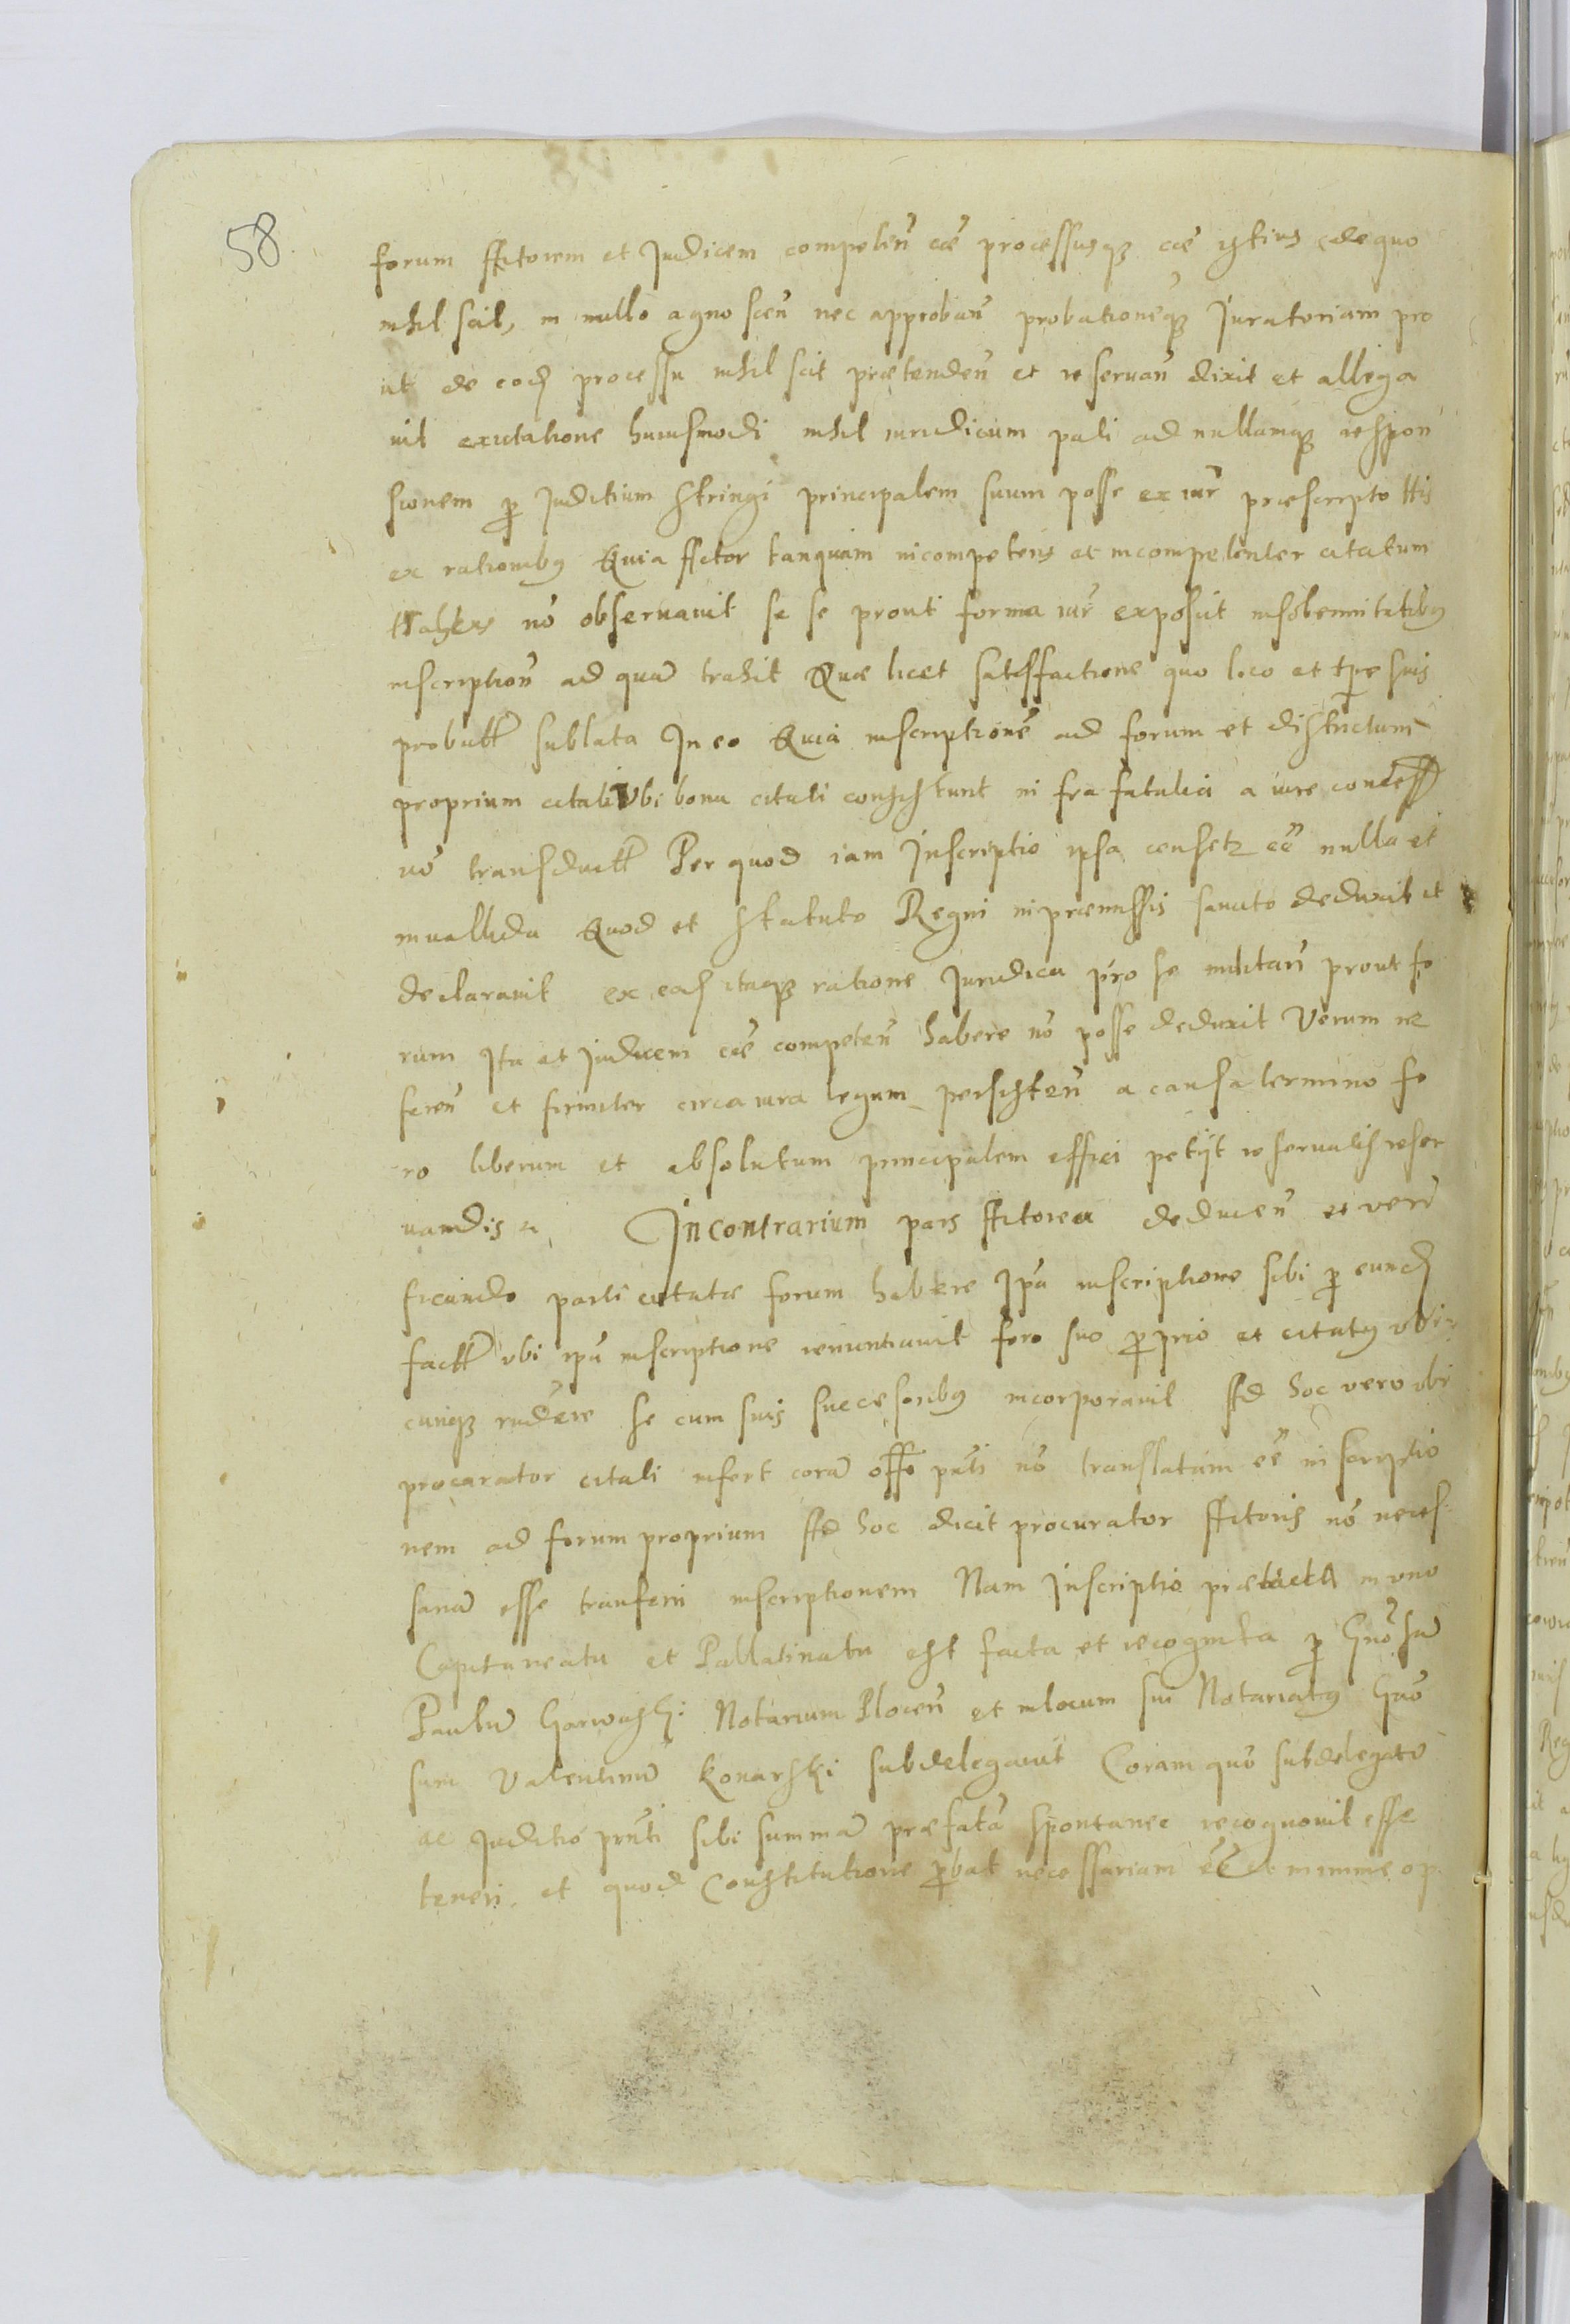 58
forum Actorem et Judicem competen̄ cāe processusq̨ cāe istius de quo
nihil scit, in nullo agnoscen̄ nec approban̄ probationēq̨ Juratoriam pro
ut de eod̨ processu nihil scit prætenden̄ et reseruan̄ dixit et allega
uit ex citatione huiusmodi nihil iuridicum pati ad nullamq̨ respon
sionem p̄ Juditium stringi principalem suum posse ex iur̄ præscripto
ex rationibq Quia Actor tanquam incompetens et incompetenter citatum
nō obseruauit se se prouti forma iur̄ exposcit in solennitatibq
inscription̄ ad quā trahit Quæ licet satisfactione quo loco et tp̄re suis
probabit̄ sublata In eo Quia inscriptionē ad forum et districtum
proprium citati Vbi bona citati consistunt in fra fatalia a iure concess
nō transduct̄ Per quod iam Inscriptio ipsa censetr ēē nulla et
inuallida Quod et statuto Regni in præmissis sancito deduxit et
declarauit ex ead̨ itaq̨ ratione Juridica pro se militan̄ prout fo
rum Ita et Judicem cāe competen̄ habere nō posse deduxit Verum re
feren̄ et firmiter circa iura legum persisten̄ a causa termino fo
ro liberum et absolutum principalem effici petijt reseruatis reser
uandis In contrarium pars Actorea deducen̄ et veri
ficando parti citatæ forum habere Ip̄a inscriptione sibi p̄ eund̨
fact̄ vbi ip̄a inscriptione renuntiauit foro suo p̄prio et citatq vbi
cunq̨ se cum suis succesoribq incorporauit Ad hoc vero vbi
procurator citati infert corā offo pn̄ti nō translatam ēē inscriptio
nem ad forum proprium Ad hoc dicit procurator Actoris nō neces
sariā esse transferri inscriptionem Nam Inscriptio prætacta in vno
Capitaneatu et Pallatinatu est facta et recognita p̄ Gn̄osū
Paulū Garwaski Notarium Plocen̄ et in locum sui Notariatq Gn̄o
sum Valentinū Konarski subdelegauit Coram quo subdelegato
ac Juditio pn̄ti sibi summā præfatā spontanee recognouit esse
teneri et quod Constitutione p̄bat necessariam ēē et minime op